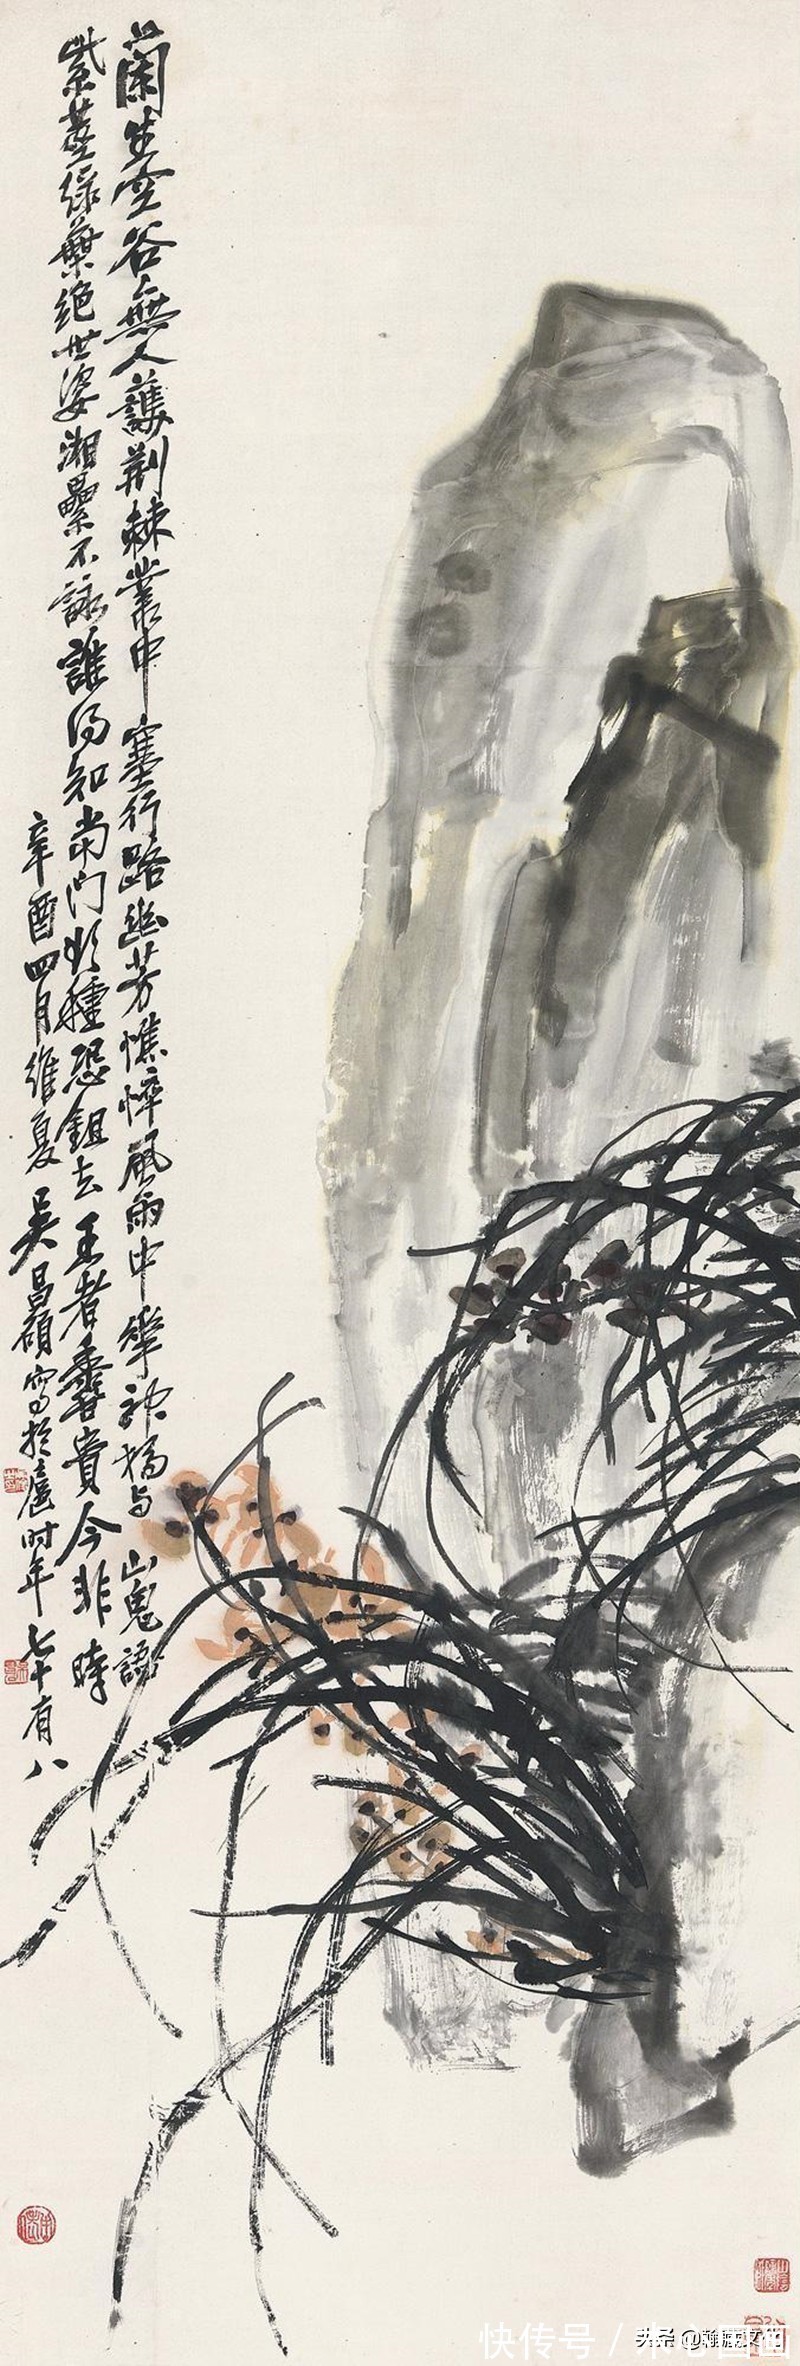 蘭生空谷無人護荆棘叢中塞行路幽芳憔悴風雨中舉神搖與山鬼語
紫莖綠葉絶世姿湘纍不詠誰得知當門欲種恐鉏去王者香貴今非時
辛酉四月維夏吳昌碩寫於扈時年七十有八
快传号/
头条 @翰墨文化